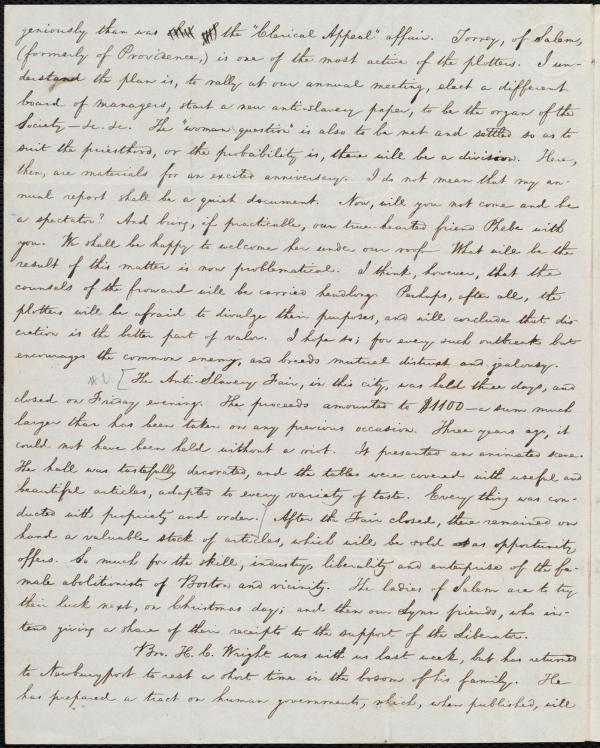 geniously than was the "Clerical Appeal" affair. Torrey, of Salem,
(formerly of Providence,) is one of the most active of the plotters. I un-
derstand the plan is, to rally at our annual meeting, elect a different
board of managers, start a new anti-slavery paper, to be the organ of the
Society—&c. &c. The "woman question" is also to be met and settled so as to
suit the priesthood, or the probability is, there will be a division. Here,
then, are materials for an excited anniversary. I do not mean that my an-
nual report shall be a quiet document. Now, will you not come and be
a spectator? And bring, if practicable, our true-hearted friend Phebe with
you. We shall be happy to welcome her under our roof. What will be the
result of this matter is now problematical. I think, however, that the
counsels of the froward will be carried headlong. Perhaps, after all, the
plotters will be afraid to divulge their purposes, and will conclude that dis-
cretion is the better part of valor. I hope so; for every such outbreak but
encourages the common enemy, and breeds mutual distrust and jealousy.
[The Anti-Slavery Fair, in this city, was held three days, and
closed on Friday evening. The proceeds amounted to $1100—a sum much
larger than has been taken on any previous occasion. Three years ago, it
could not have been held without a riot. It presented an animated scene.
The hall was tastefully decorated, and the tables were covered with useful and
beautiful articles, adapted to every variety of taste. Every thing was con-
ducted with propriety and order.] After the Fair closed, there remained on
hand a valuable stock of articles, which will be sold as opportunity
offers. So much for the skill, industry, liberality and enterprise of the fe-
male abolitionists of Boston and vicinity. The ladies of Salem are to try
their luck next, on Christmas day; and then our Lynn friends, who in-
tend giving a share of their receipts to the support of the Liberator.
Bro. H. C. Wright was with us last week, but has returned
to Newburyport to rest a short time in the bosom of his family. He
has prepared a tract on human governments, which, when published, will